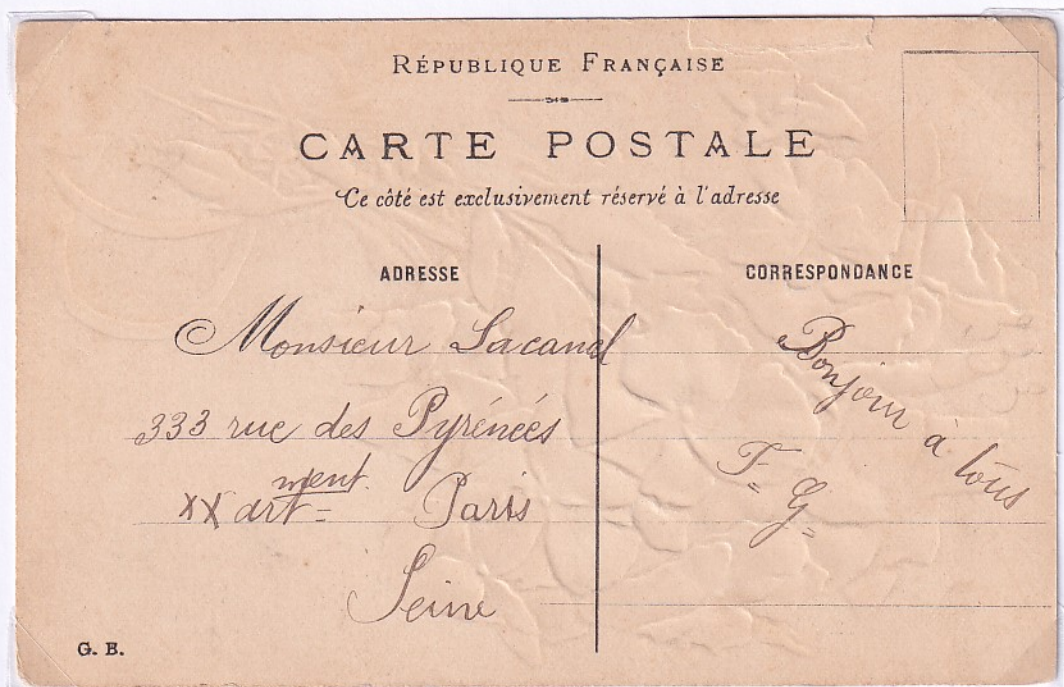 RÉPUBLIQUE FRANÇAISE
CARTE POSTALE
Ce côté est exclusivement réservé à l'adresse
ADRESSE
Monsieur Lacanal
333 rue des Pyrénées
XX art ment. Paris
Seine
CORRESPONDANCE
Bonjour à tous
F= G=
G. B.